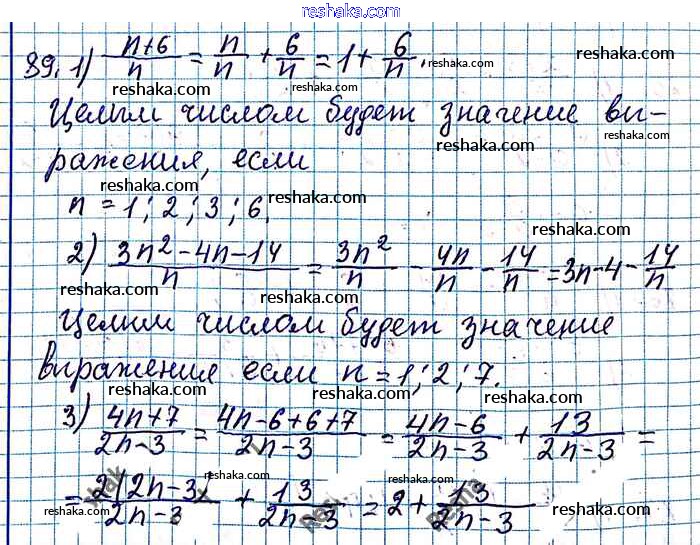 reshaka.com
89. 1) (n+6)/n = n/n + 6/n = 1 + 6/n.
reshaka.com reshaka.com reshaka.com
Целым числом будет значение вы-
reshaka.com
ражения, если
reshaka.com reshaka.com
n = 1; 2; 3; 6.
reshaka.com
2) (3n²-4n-14)/n = 3n²/n - 4n/n - 14/n = 3n-4-14/n
reshaka.com reshaka.com reshaka.com
Целым числом будет значение
reshaka.com reshaka.com
выражения если n = 1; 2; 7.
reshaka.com reshaka.com
3) (4n+7)/(2n-3) = (4n-6+6+7)/(2n-3) = (4n-6)/(2n-3) + 13/(2n-3) =
reshaka.com reshaka.com reshaka.com
= 2(2n-3)/(2n-3) + 13/(2n-3) = 2 + 13/(2n-3)
reshaka.com reshaka.com reshaka.com